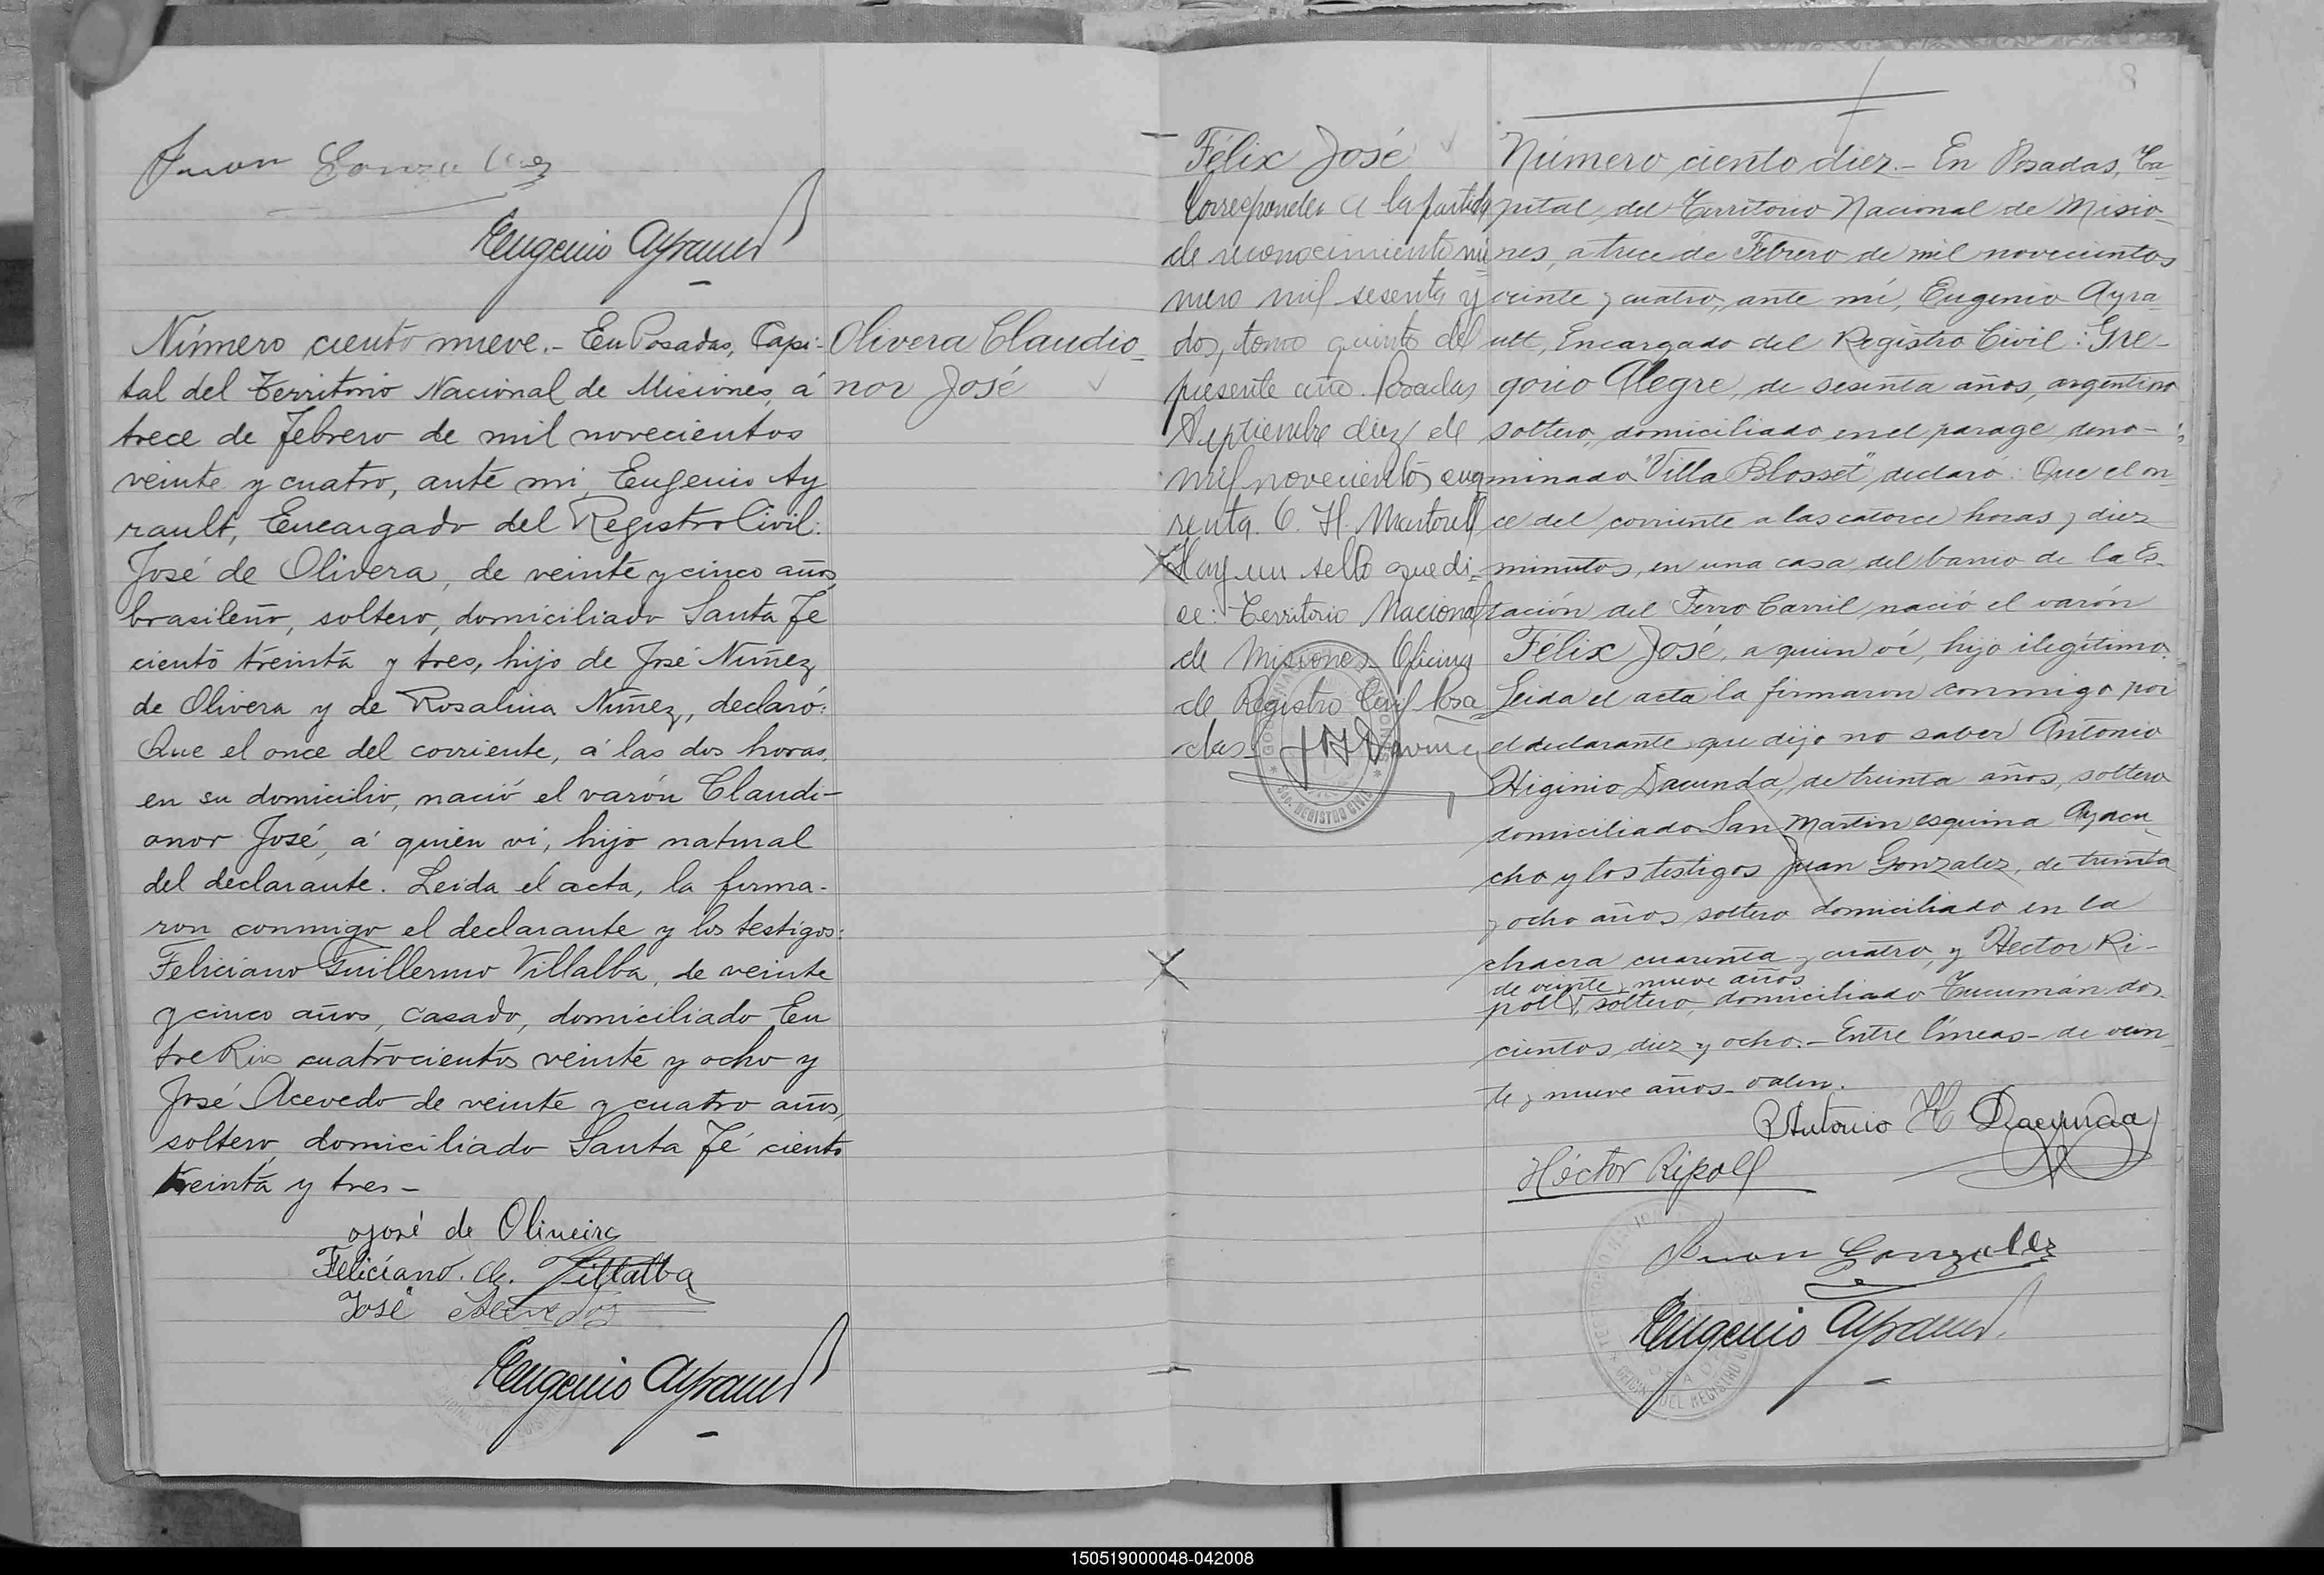 Juan Gonzalez
Eugenio Ayrault
Número ciento nueve.- En Posadas, Capi-
tal del Territorio Nacional de Misiones, á
trece de Febrero de mil novecientos
veinte y cuatro, ante mi, Eugenio Ay
rault, Encargado del Registro Civil:
José de Olivera, de veinte y cinco años,
brasileño, soltero, domiciliado Santa Fe
ciento treinta y tres, hijo de José Nuñez
de Olivera y de Rosalina Nuñez, declaró:
Que el once del corriente, á las dos horas,
en su domicilio, nació el varón Claudi-
onor José, á quien vi, hijo natural
del declarante. Leida el acta, la firma-
ron conmigo el declarante y los testigos:
Feliciano Guillermo Villalba, de veinte
y cinco años, casado, domiciliado En
tre Rios cuatrocientos veinte y ocho y
José Acevedo de veinte y cuatro años,
soltero, domiciliado Santa Fé ciento
treinta y tres -
José de Oliveira
Feliciano. G. Villalba
José Acevedo
Eugenio Ayrault
Olivera Claudio-
nor José
8
Félix José
Corresponde a la partida
de reconocimiento nú
mero mil sesenta y
dos, tomo quinto del
presente año. Posadas
Septiembre diez de
mil novecientos cua
renta. C. H. Martorell
Hay un sello que di-
ce: Territorio Nacional
de Misiones Oficina
de Registro Civil Posa
das.
REGISTRO CIVIL
Número ciento diez.- En Posadas, Ca-
pital del Territorio Nacional de Misio-
nes, a trece de Febrero de mil novecientos
veinte y cuatro, ante mí, Eugenio Ayra
ult, Encargado del Registro Civil: Gre-
gorio Alegre, de sesenta años, argentino
soltero, domiciliado en el parage deno-
minado "Villa Blosset", declaró: Que el on
ce del corriente a las catorce horas y diez
minutos, en una casa del barrio de la Es-
tación del Ferro Carril, nació el varón
Félix José, a quien ví, hijo ilegítimo.
Leida el acta la firmaron conmigo por
el declarante que dijo no saber Antonio
Higinio Dacunda, de treinta años, soltero
domiciliado San Martin esquina Ayacu-
cho y los testigos Juan Gonzalez, de treinta
y ocho años soltero domiciliado en la
chacra cuarenta y cuatro, y Hector Ri-
de veinte y nueve años
poll, soltero, domiciliado Tucumán dos-
cientos diez y ocho.- Entre líneas- de vein-
te y nueve años- valen.
Antonio H Dacunda
Héctor Ripoll
Juan Gonzalez
Eugenio Ayrault
OFICINA DEL REGISTRO
150519000048-042008